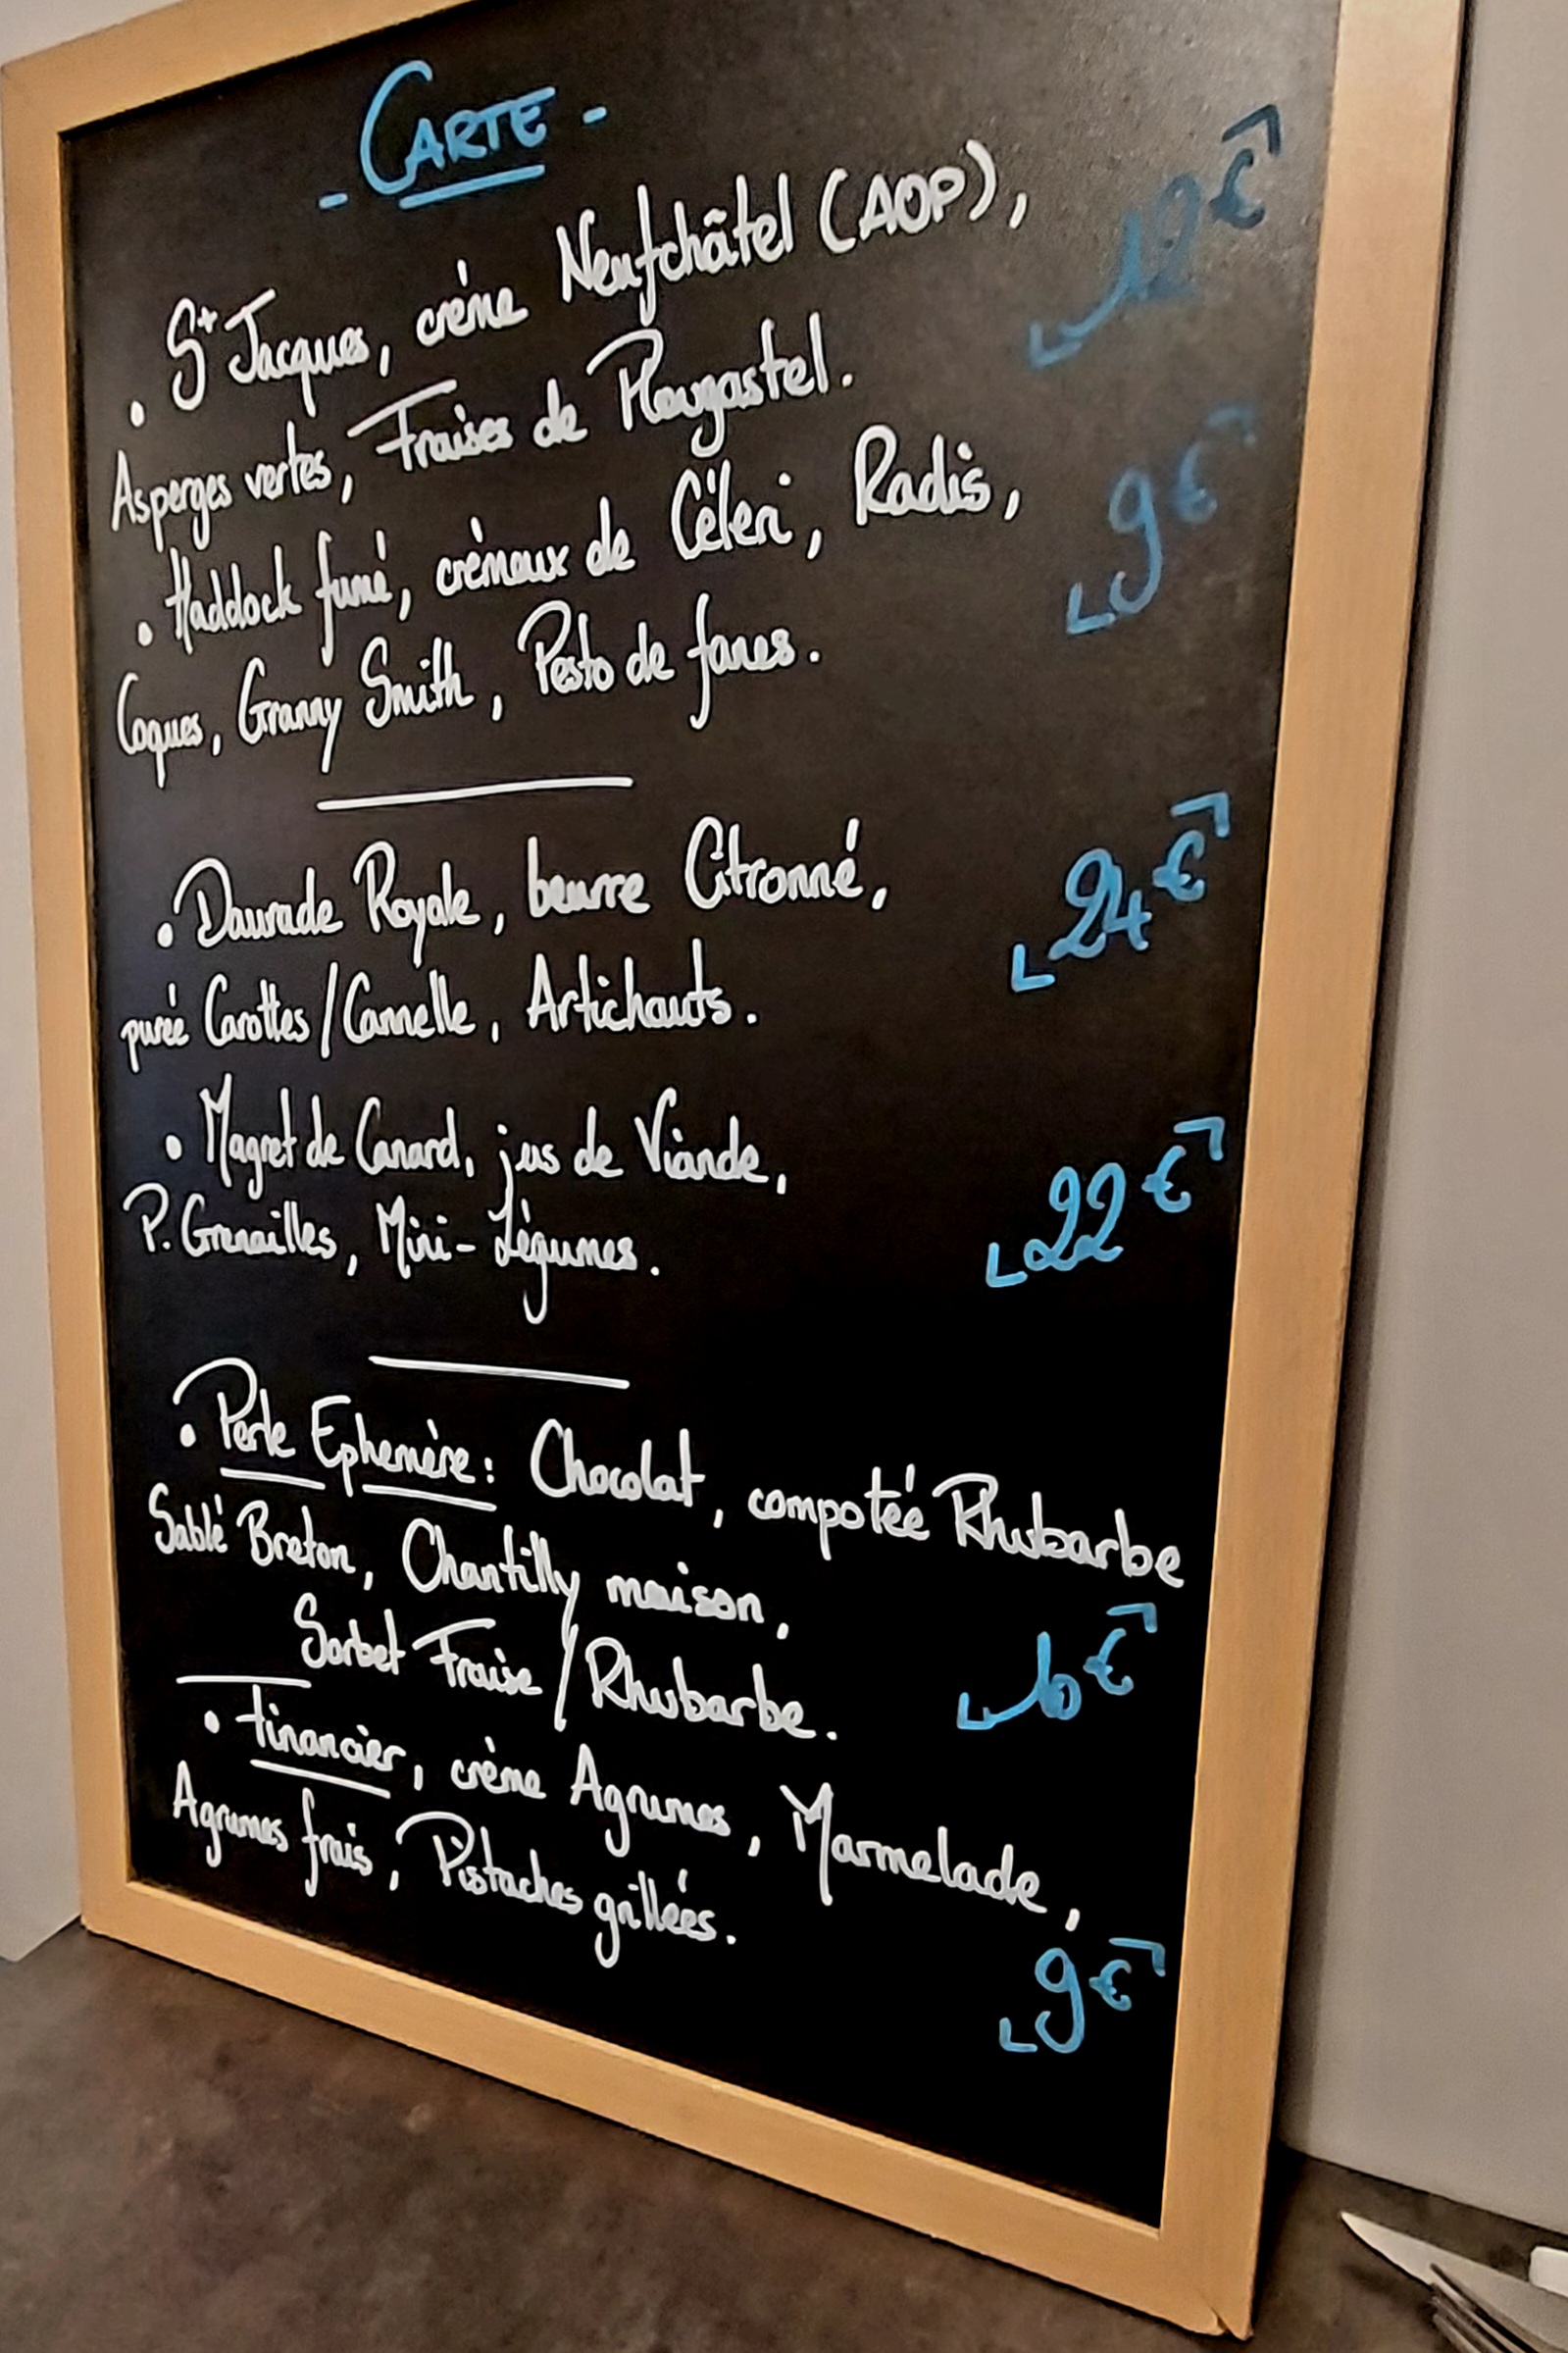 - CARTE -
• St Jacques, crème Neufchâtel (AOP),
Asperges vertes, Fraises de Plougastel.
12€
• Haddock fumé, crèmeux de Céleri, Radis,
Coques, Granny Smith, Pesto de fanes.
9€
• Daurade Royale, beurre Citronné,
purée Carottes/Cannelle, Artichauts.
24€
• Magret de Canard, jus de Viande,
P. Grenailles, Mini-Légumes.
22€
• Perle Ephemère: Chocolat, compotée Rhubarbe
Sablé Breton, Chantilly maison,
Sorbet Fraise/Rhubarbe.
• Financier, crème Agrumes, Marmelade,
Agrumes frais, Pistaches grillées.
9€